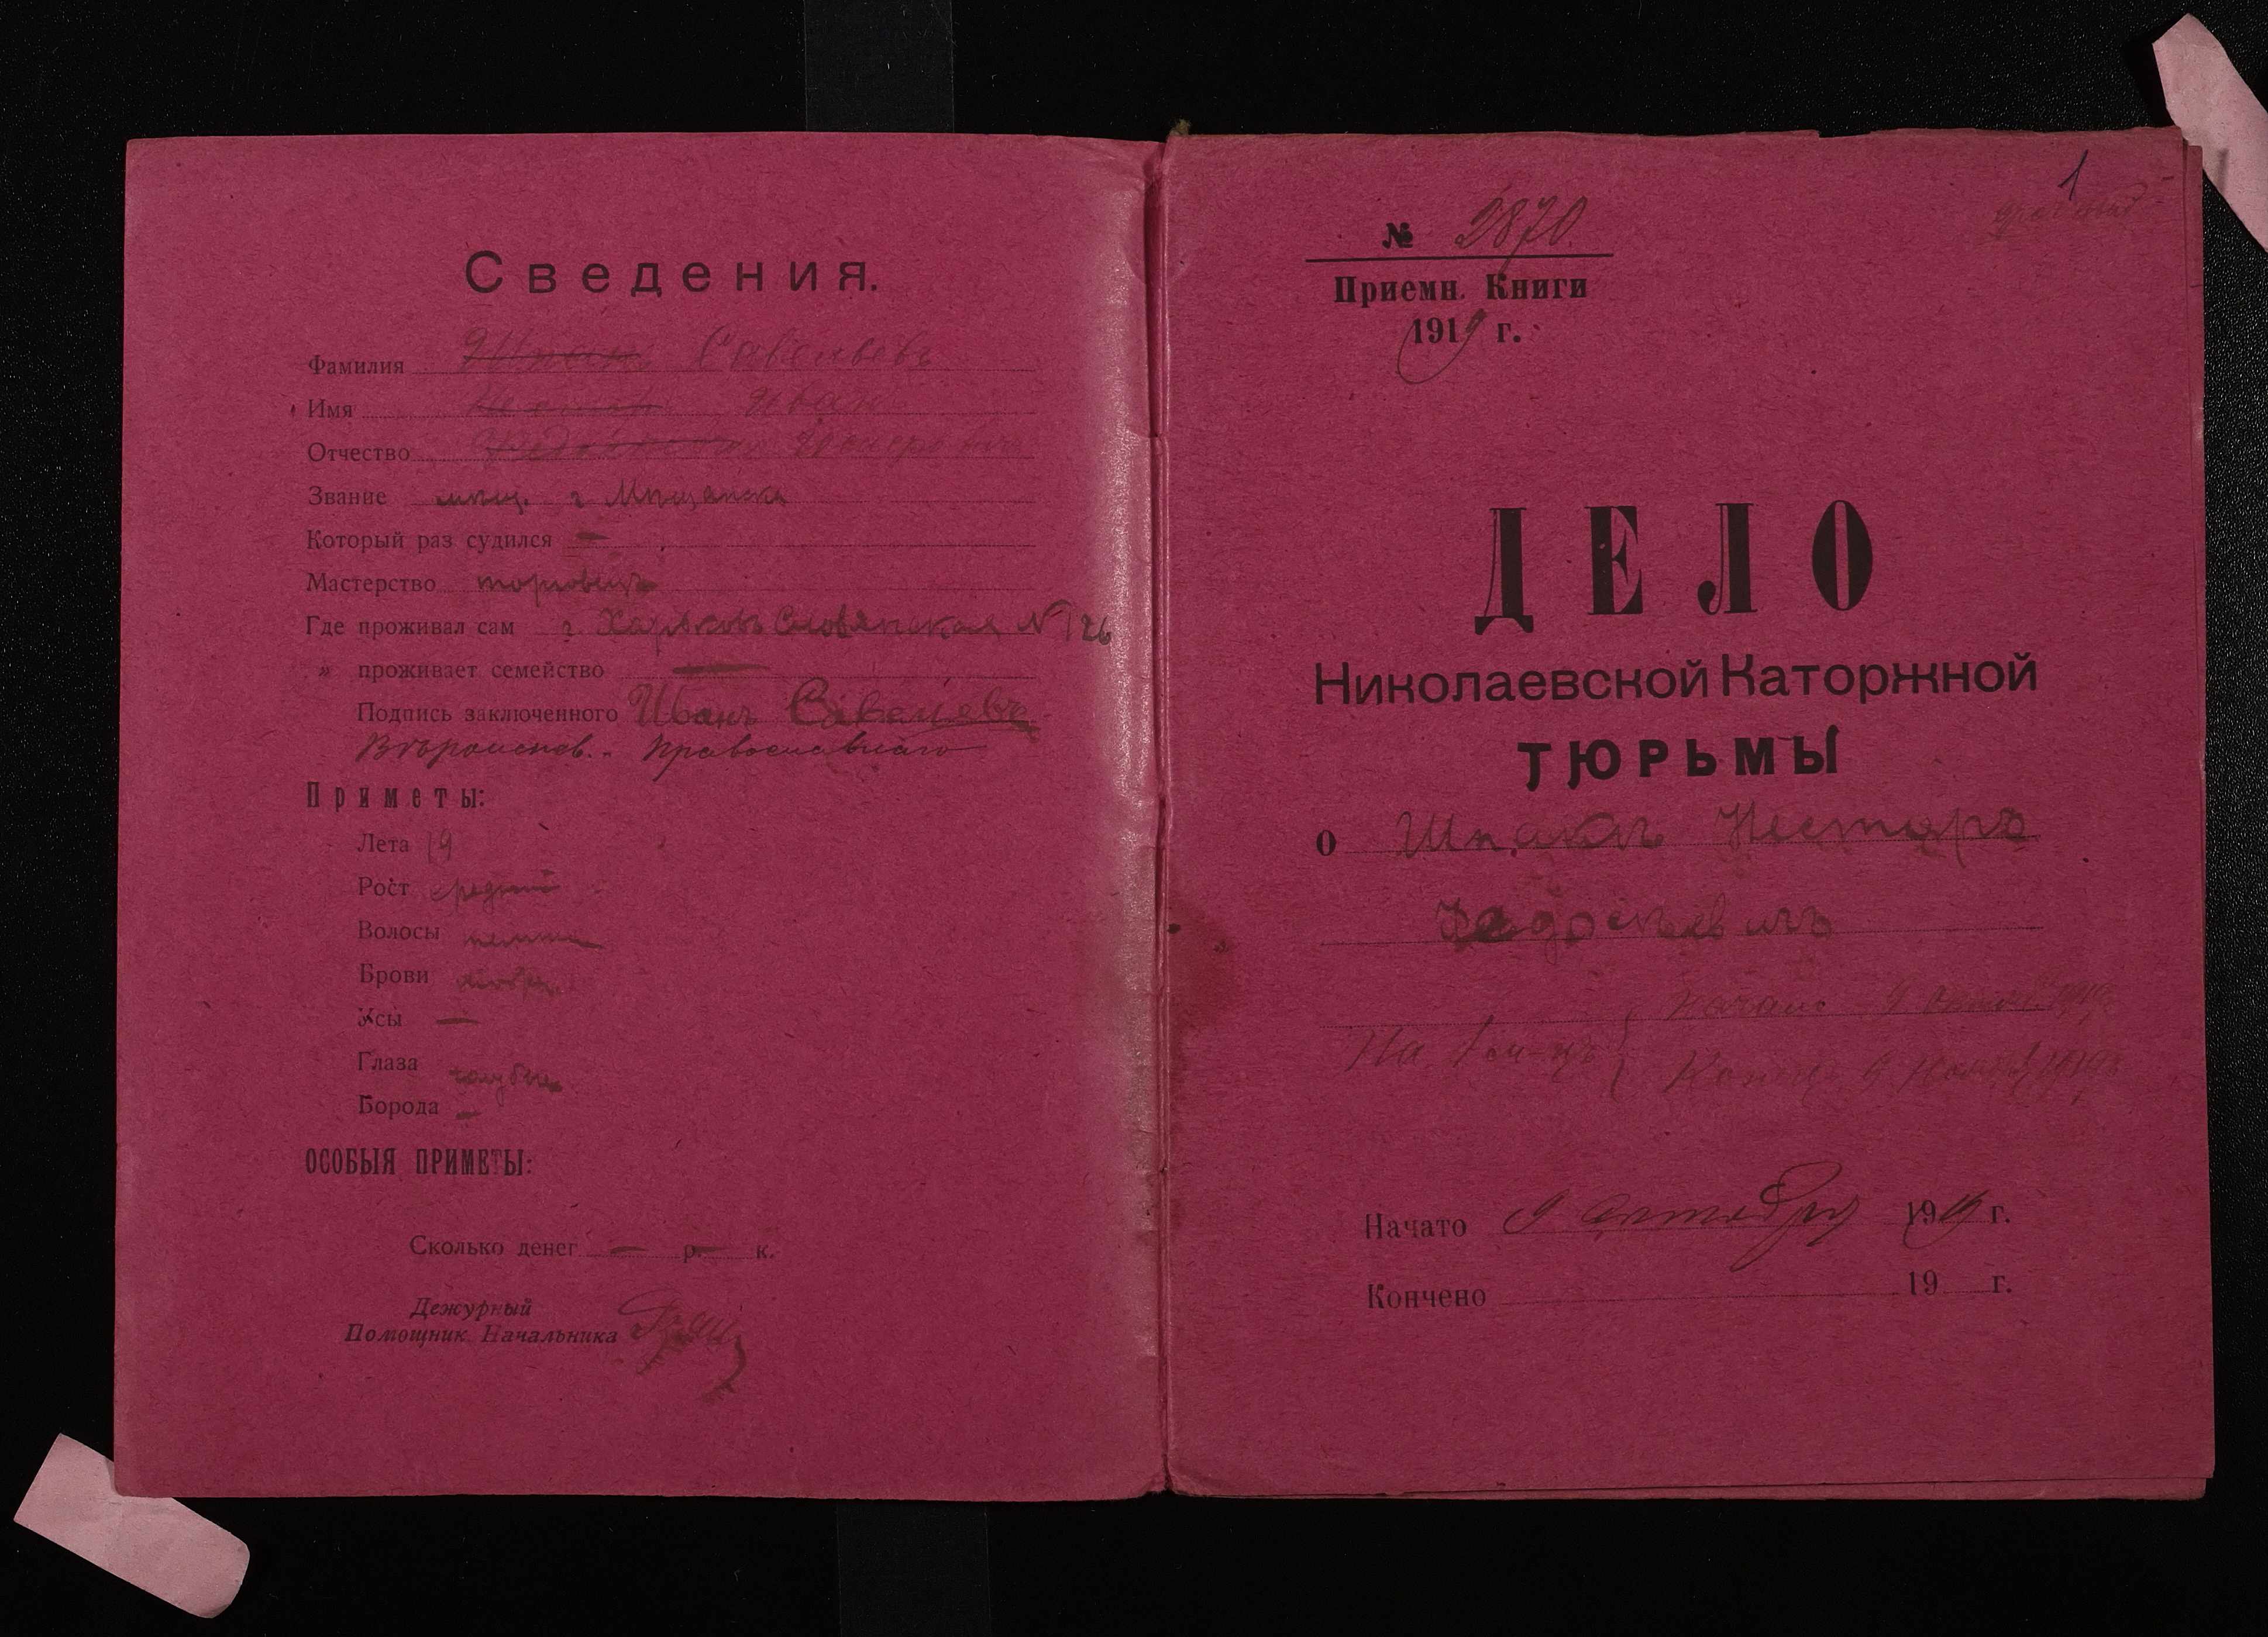 Сведения.
Фамилия Шпакъ Савельевъ
Имя Иван
Отчество
Звание мѣщ. г.
Который раз судился —
Мастерство торговецъ
Где проживал сам г. Харьковъ Словянская № 126
„ проживает семейство —
Подпись заключенного Иванъ Савельевъ
православнаго
Приметы:
Лета 19
Рост средний
Волосы
Брови
Усы —
Глаза голубые
Борода —
ОСОБЫЯ ПРИМЕТЫ:
Сколько денег — р. — к.
Дежурный
Помощник Начальника
1
№ 2870
Приемн. Книги
1919 г.
ДЕЛО
Николаевской Каторжной
ТЮРЬМЫ
О Шпакъ Нестеръ
Федосѣевичъ
Начало 9
На
Конец 9
Начато 9 октября 1919 г.
Кончено 19 г.